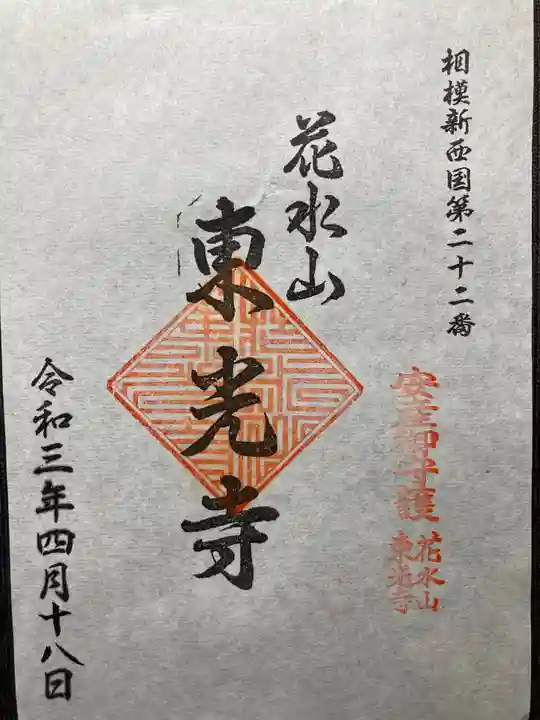 相模新西国第二十二番
安産御守護
花水山
東光寺
花水山
東光寺
令和三年四月十八日